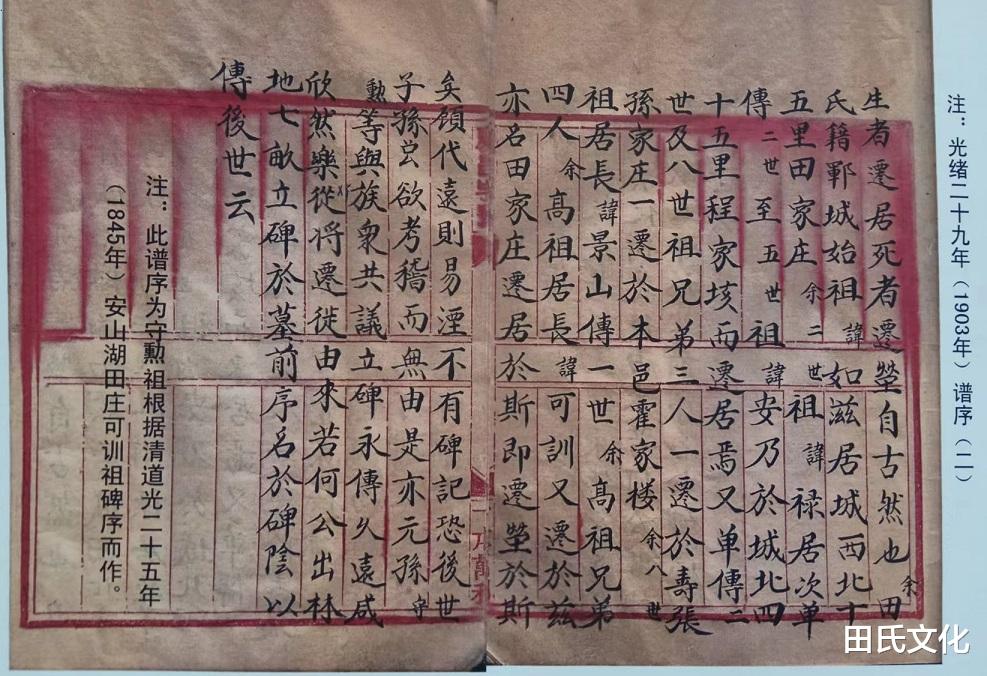 注：光绪二十九年（1903年）谱序（二）
生者遷居死者遷塋自古然也余田
氏籍鄆城始祖諱如滋居城西北十
五里田家庄余二世祖諱禄居次单
傳二世至五世祖諱安乃於城北四
十五里程家垓而遷居焉又单傳二
世及八世祖兄弟三人一遷於壽張
孫家庄一遷於本邑霍家楼余八世
祖居長諱景山傳一世余高祖兄弟
四人余高祖居長諱可訓又遷於兹
亦名田家庄遷居於斯即遷塋於斯
矣頋代遠則易湮不有碑記恐後世
子孫雖欲考稽而無由是亦元孫守
勲等與族衆共議立碑永傳久遠咸
欣然樂從将遷徙由來若何公出林
地七畝立碑於墓前序名於碑陰以
傳後世云
注：此谱序为守勲祖根据清道光二十五年
（1845年）安山湖田庄可训祖碑序而作。
田氏文化